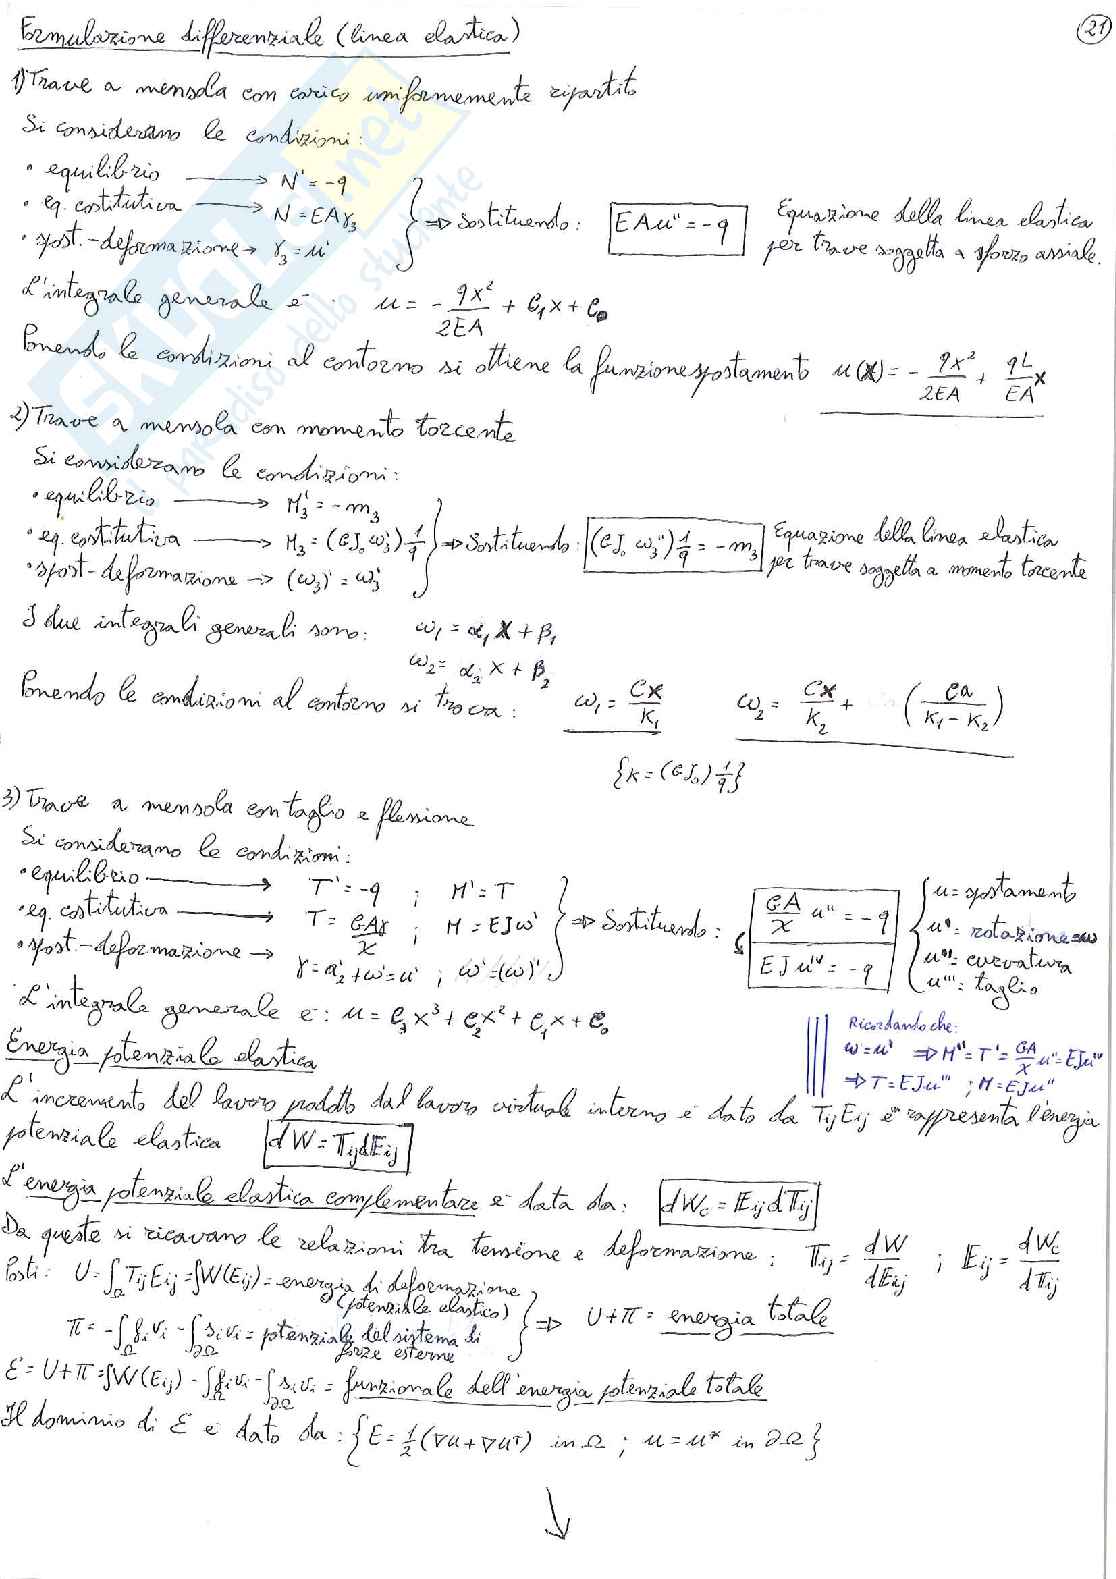 Formulazione differenziale (linea elastica)
21
1) Trave a mensola con carico uniformemente ripartito
Si considerano le condizioni:
• equilibrio ⟶ N' = -q
• eq. costitutiva ⟶ N = EAγ₃
• spost.-deformazione → γ₃ = u'
⇒ Sostituendo: EAu'' = -q
Equazione della linea elastica
per trave soggetta a sforzo assiale.
L'integrale generale è: u = - qx²/2EA + C₁x + C₀
Ponendo le condizioni al contorno si ottiene la funzione spostamento u(x) = - qx²/2EA + qL/EA x
2) Trave a mensola con momento torcente
Si considerano le condizioni:
• equilibrio ⟶ M₃' = -m₃
• eq. costitutiva ⟶ M₃ = (GJ₀ ω₃') 1/q
• spost-deformazione → (ω₃)' = ω₃'
⇒ Sostituendo: (GJ₀ ω₃'') 1/q = -m₃
Equazione della linea elastica
per trave soggetta a momento torcente
I due integrali generali sono: ω₁ = α₁x + β₁
ω₂ = α₂x + β₂
Ponendo le condizioni al contorno si trova: ω₁ = Cx/K₁ ω₂ = Cx/K₂ + (Ca/K₁-K₂)
{K = (GJ₀) 1/q}
3) Trave a mensola con taglio e flessione
Si considerano le condizioni:
• equilibrio ⟶ T' = -q ; M' = T
• eq. costitutiva ⟶ T = GAγ/χ ; M = EJω'
• spost.-deformazione → γ = a₂' + ω' = u' ; ω' = (ω)'
⇒ Sostituendo: GA/χ u'' = -q
EJu'ᵛ = -q
u = spostamento
u' = rotazione = ω
u'' = curvatura
u''' = taglio
L'integrale generale è: u = C₃x³ + C₂x² + C₁x + C₀
Ricordando che:
ω = u' ⇒ M'' = T' = GA/χ u'' = EJu''''
⇒ T = EJu''' ; M = EJu''
Energia potenziale elastica
L'incremento del lavoro prodotto dal lavoro virtuale interno è dato da TijEij e rappresenta l'energia
potenziale elastica dW = TijdEij
L'energia potenziale elastica complementare è data da: dWc = EijdTij
Da queste si ricavano le relazioni tra tensione e deformazione: Tij = dW/dEij ; Eij = dWc/dTij
Posti: U = ∫Ω TijEij = ∫W(Eij) = energia di deformazione
(potenziale elastico)
π = -∫Ω fivi - ∫∂Ω sivi = potenziale del sistema di
forze esterne
⇒ U + π = energia totale
ℰ = U + π = ∫W(Eij) - ∫Ω fivi - ∫∂Ω sivi = funzionale dell'energia potenziale totale
Il dominio di ℰ è dato da: {E = 1/2 (∇u + ∇uᵀ) in Ω ; u = u* in ∂Ω}
skuola.net
il paradiso dello studente